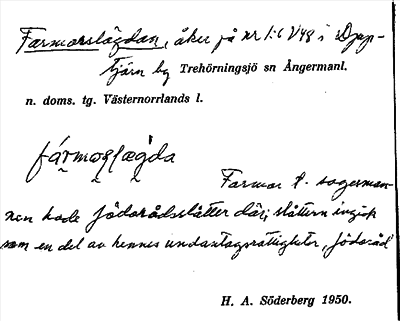 Farmorslägdan, åker på nr 1:6 1/48 i Djup-
tjärn by Trehörningsjö sn Ångermanl.
n. doms. tg. Västernorrlands l.
fármoṣlægda
Farmor t. sagerman-
nen hade födorådsslåtter där; slåttern ingick
som en del av hennes undantagsrättigheter, födoråd
H. A. Söderberg 1950.